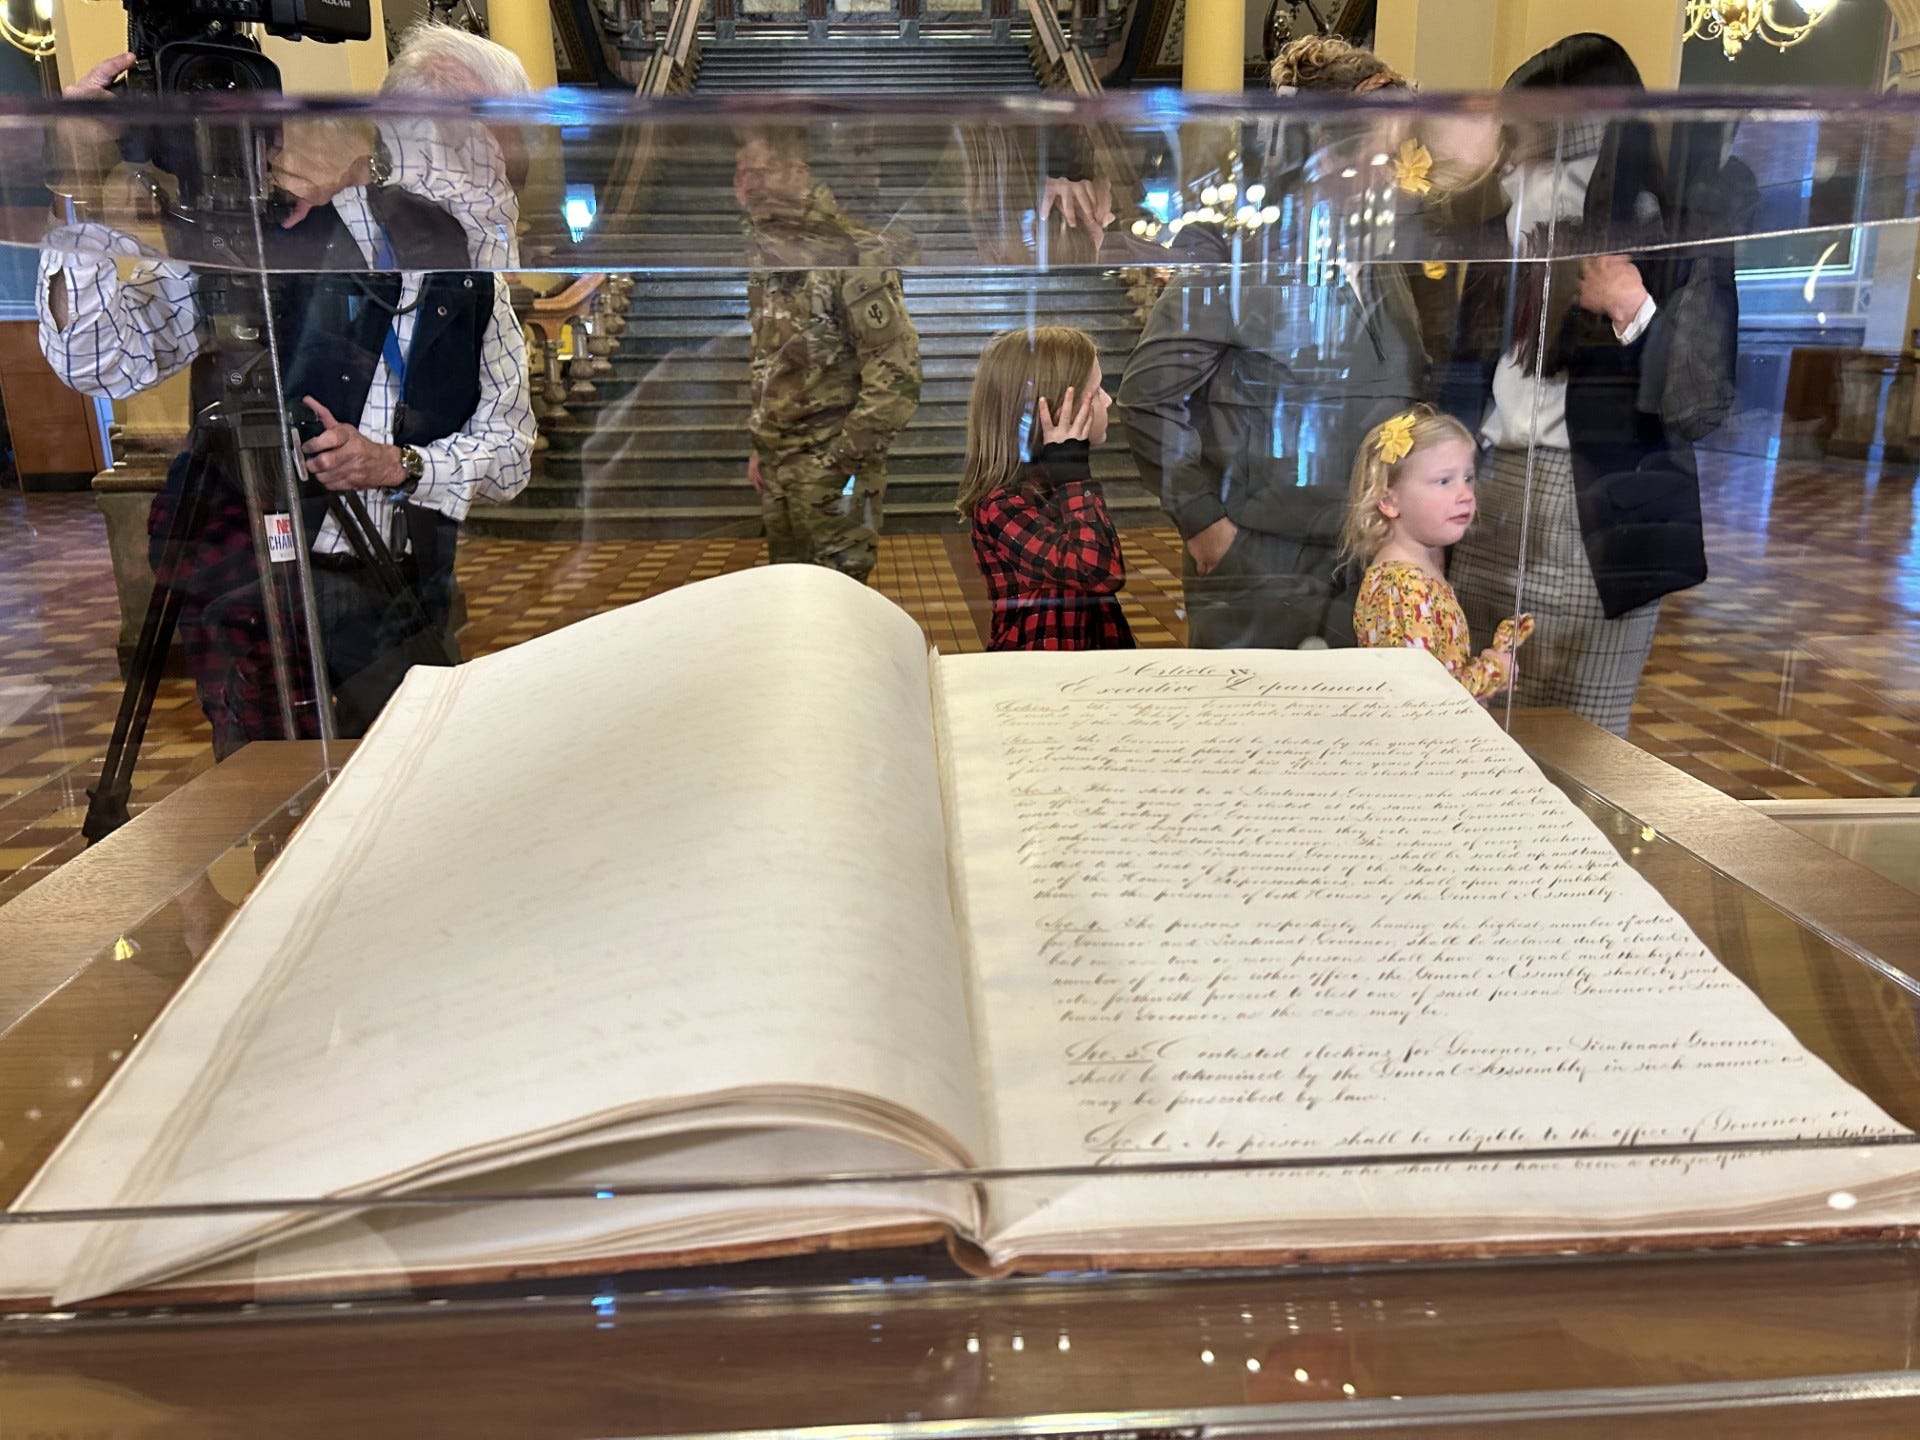 Article IV.
Executive Department.
Section 1. The Supreme executive power of this State shall
be vested in a Chief Magistrate, who shall be styled the
Governor of the State of Iowa.
Sec. 2. The Governor shall be elected by the qualified elec-
tors at the time and place of voting for members of the Gener-
al Assembly, and shall hold his office two years from the time
of his installation, and until his successor is elected and qualified.
Sec. 3. There shall be a Lieutenant Governor, who shall hold
his office two years and be elected at the same time as the Gov-
ernor. In voting for Governor and Lieutenant Governor, the
electors shall designate for whom they vote as Governor, and
for whom as Lieutenant Governor. The returns of every election
for Governor, and Lieutenant Governor, shall be sealed up and trans-
mitted to the seat of government of the State, directed to the Speak-
er of the House of Representatives, who shall open and publish
them in the presence of both Houses of the General Assembly.
Sec. 4. The persons respectively having the highest number of votes
for Governor and Lieutenant Governor, shall be declared duly elected,
but in case two or more persons shall have an equal and the highest
number of votes for either office, the General Assembly shall, by joint
vote, forthwith proceed to elect one of said persons Governor, or Lieu-
tenant Governor, as the case may be.
Sec. 5. Contested elections for Governor, or Lieutenant Governor,
shall be determined by the General Assembly in such manner as
may be prescribed by law.
Sec. 6. No person shall be eligible to the office of Governor, or
Lieutenant Governor, who shall not have been a citizen of the United States,